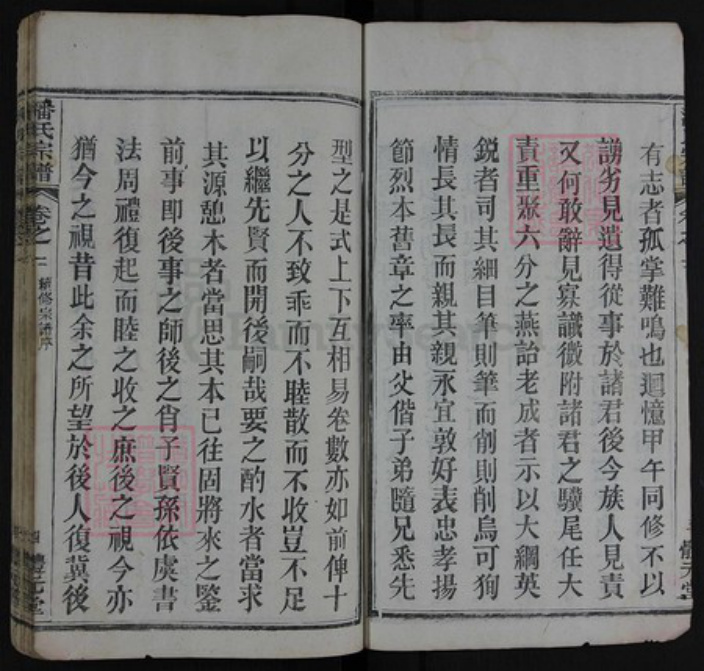 有志者孤掌難鳴也迴憶甲午同修不以
謭劣見遺得從事於諸君後今族人見責
又何敢辭見寡識微附諸君之驥尾任大
責重聚六分之燕詒老成者示以大綱英
銳者司其細目筆則筆而削則削烏可狥
情長其長而親其親永宜敦好表忠孝揚
節烈本舊章之率由父偕子弟隨兄悉先
型之是式上下互相易卷數亦如前俾十
分之人不致乖而不睦散而不收豈不足
以繼先賢而開後嗣哉要之酌水者當求
其源憩木者當思其本已往固將來之鑒
前事即後事之師後之肖子賢孫依虞書
法周禮復起而睦之收之庶後之視今亦
猶今之視昔此余之所望於後人復冀後
潘氏宗譜
卷之二
續修宗譜序